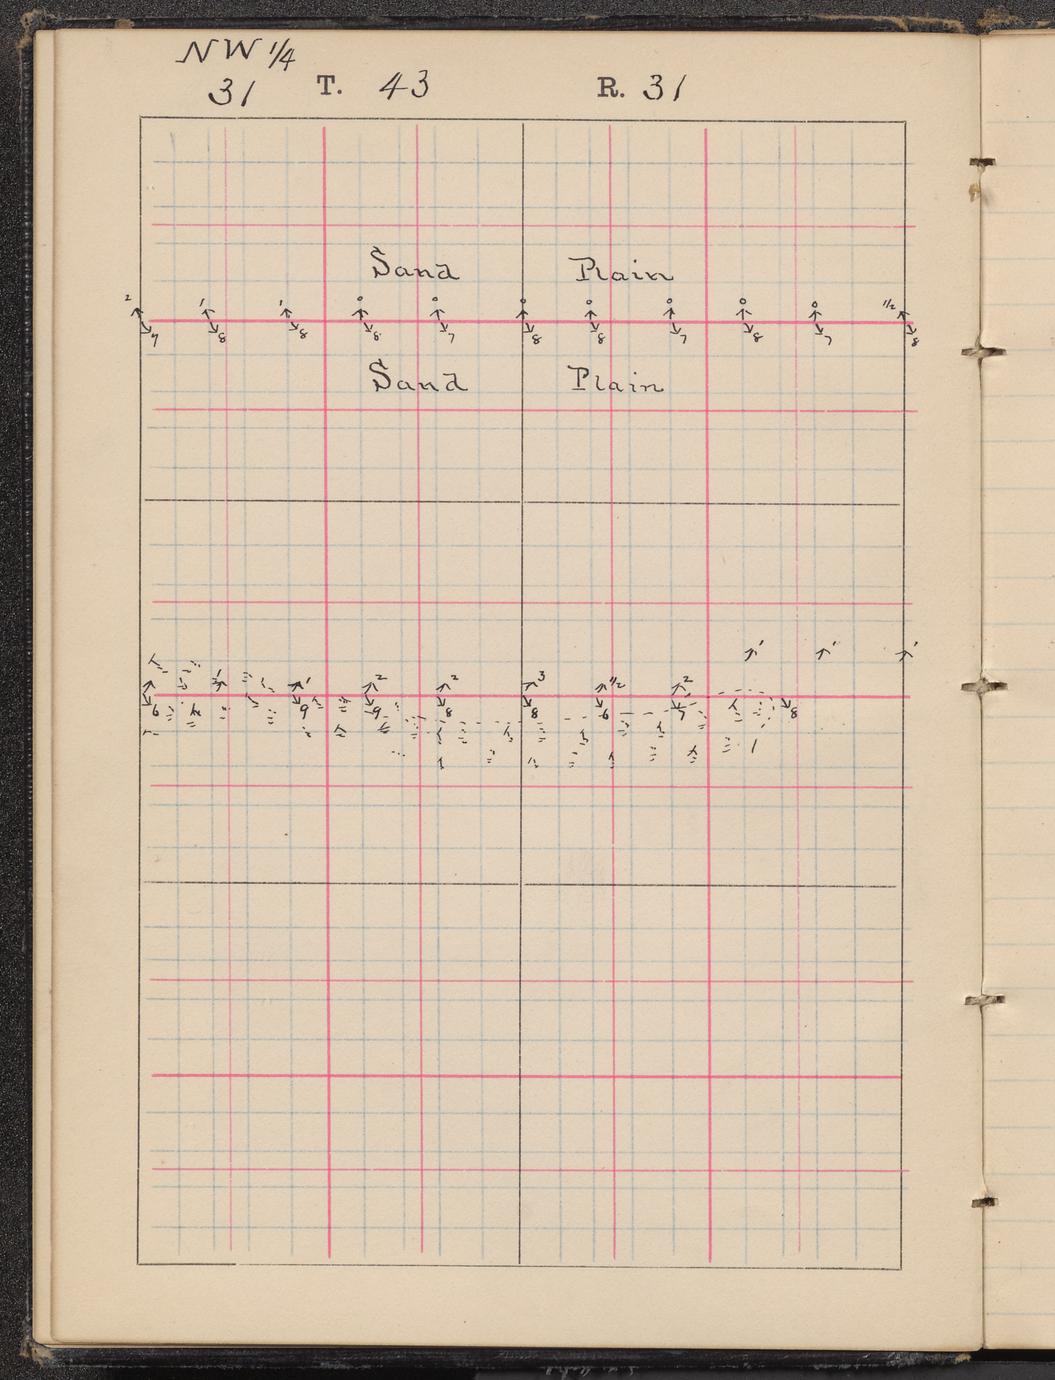 NW 1/4
31 T. 43 R. 31
Sand Plain
2 1 1 0 0 0 0 0 0 0 1/2
7 8 8 6 7 8 8 7 8 7 8
Sand Plain
1 1 1
1 1 2 2 3 1/2 2
6 9 9 8 8 6 7 8